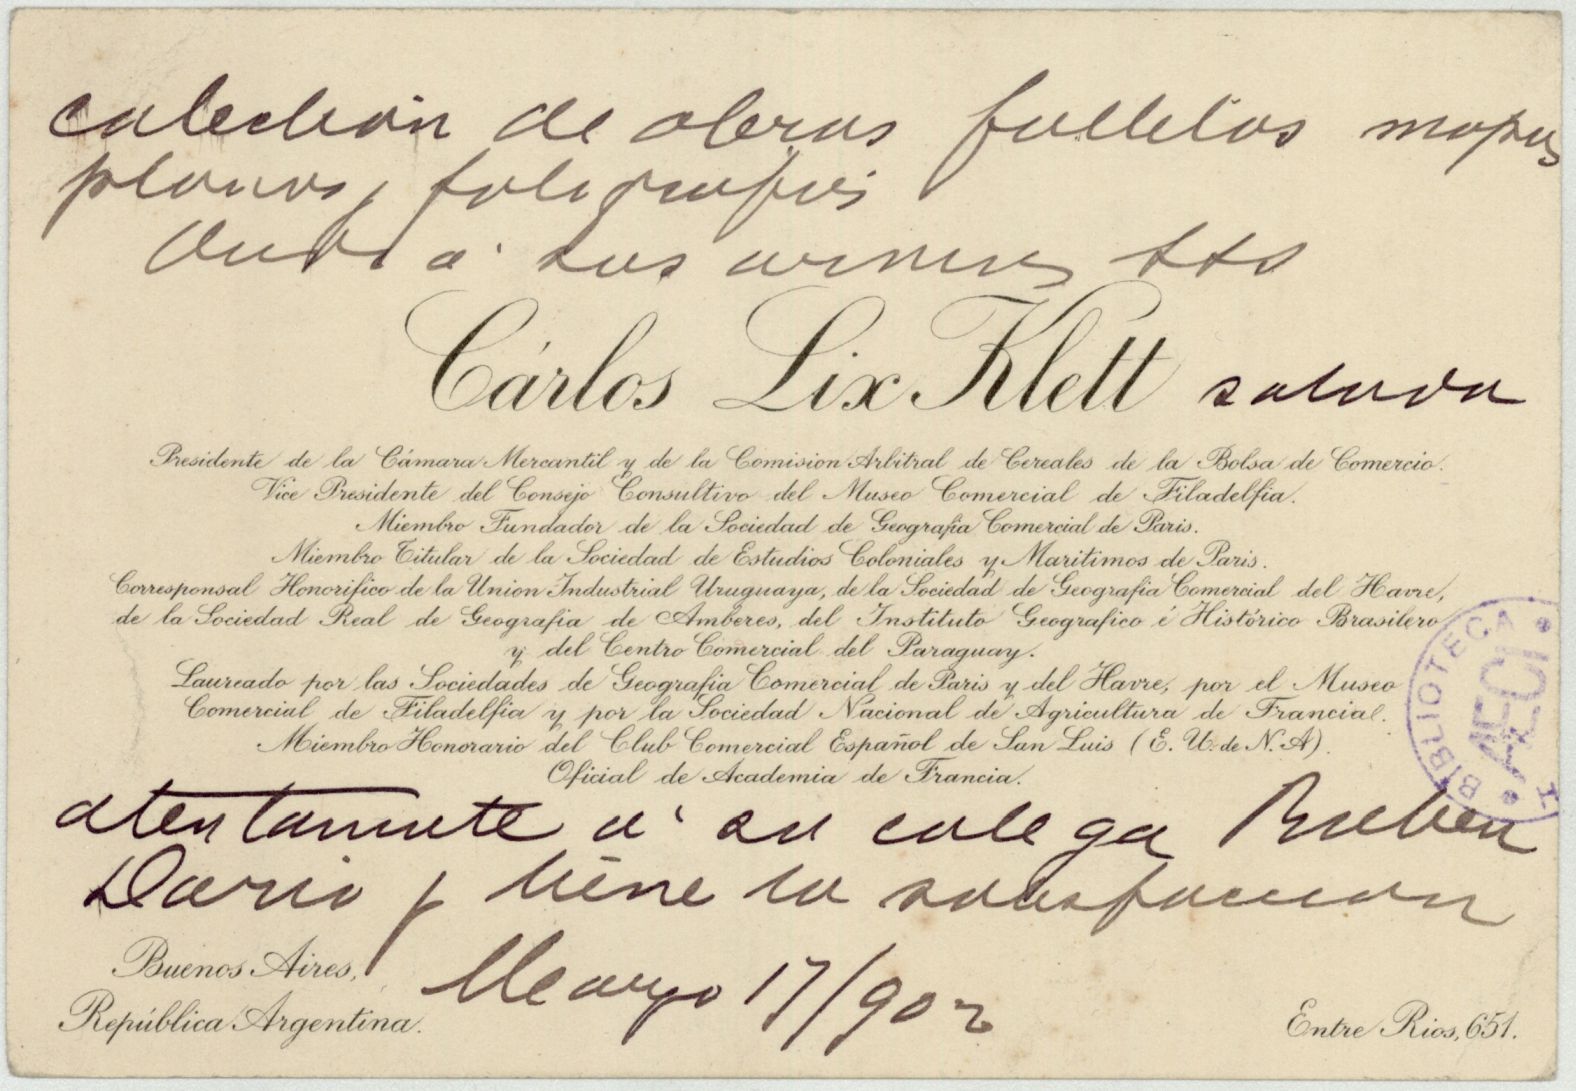 colección de obras folletos mapas
planos y fotografias
á sus ordenes SSS
Cárlos Lix Klett saluda
Presidente de la Cámara Mercantil y de la Comision Arbitral de Cereales de la Bolsa de Comercio.
Vice Presidente del Consejo Consultivo del Museo Comercial de Filadelfia.
Miembro Fundador de la Sociedad de Geografia Comercial de Paris.
Miembro Titular de la Sociedad de Estudios Coloniales y Maritimos de Paris.
Corresponsal Honorifico de la Union Industrial Uruguaya, de la Sociedad de Geografia Comercial del Havre,
de la Sociedad Real de Geografia de Amberes, del Instituto Geografico é Histórico Brasilero
y del Centro Comercial del Paraguay.
Laureado por las Sociedades de Geografia Comercial de Paris y del Havre, por el Museo
Comercial de Filadelfia y por la Sociedad Nacional de Agricultura de Francia.
Miembro Honorario del Club Comercial Español de San Luis (E. U. de N. A).
Oficial de Academia de Francia.
BIBLIOTECA
AECI
atentamente á su colega Ruben
Dario y tiene la satisfaccion
Buenos Aires,
República Argentina.
Marzo 17/902
Entre Rios, 651.